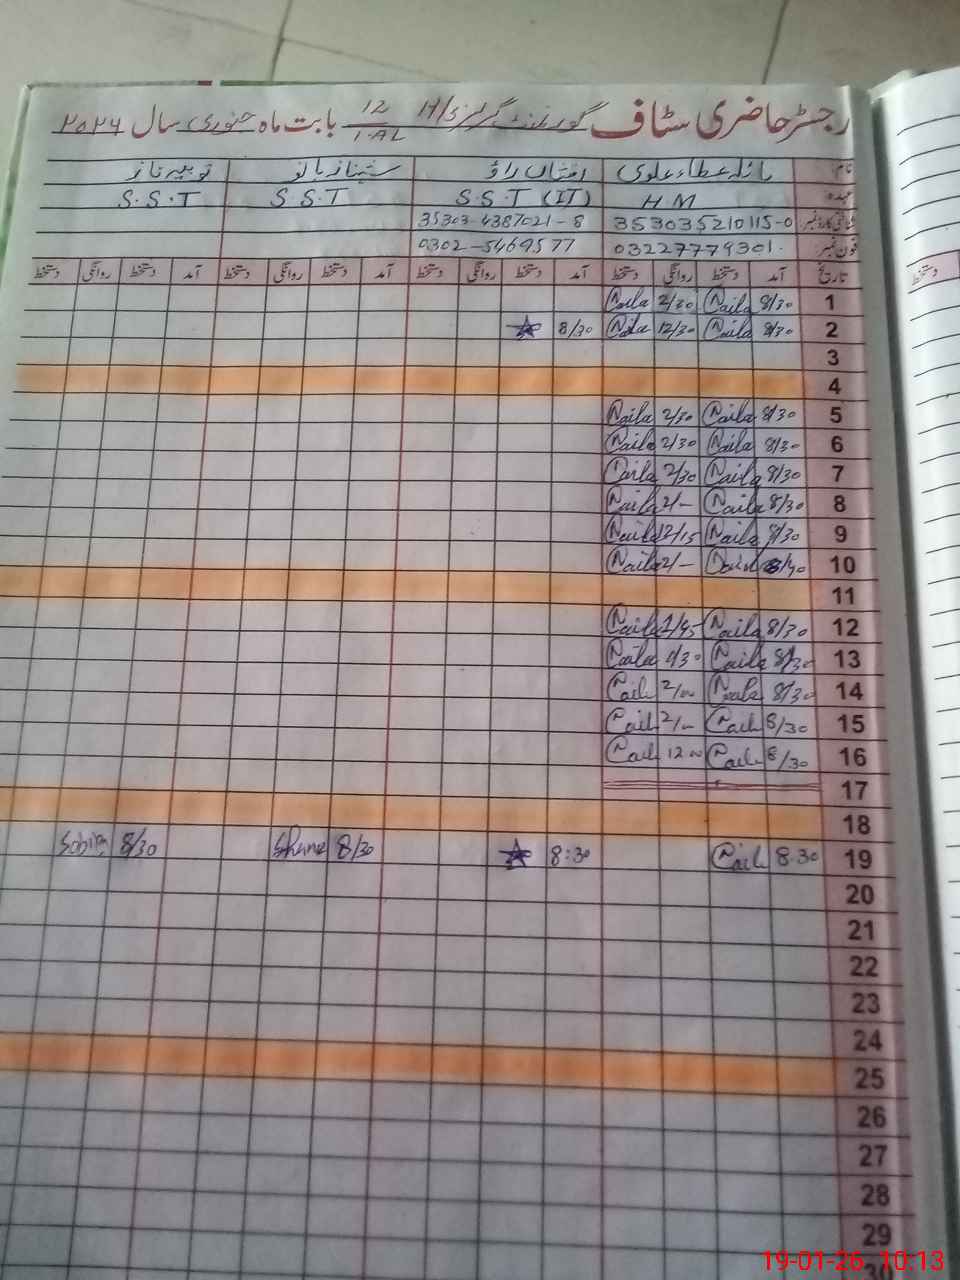 رجسٹر حاضری سٹاف گورنمنٹ گرلز H/S 12/1.AL بابت ماہ جنوری سال ۲۰۲۶
نام نائلہ عطاء علوی افشاں راؤ شہناز بانو ثوبیہ ناز
عہدہ H M S.S.T (IT) S.S.T S.S.T
شناختی کارڈ نمبر: 353035210115-0 35303-4387021-8
فون نمبر: 03227779301 0302-5469577
تاریخ آمد دستخط روانگی دستخط آمد دستخط روانگی دستخط آمد دستخط روانگی دستخط آمد دستخط روانگی دستخط
1 8/30 Naila 2/30 Naila
2 8/30 Naila 12/30 Naila 8/30
3
4
5 8/30 Naila 2/30 Naila
6 8/30 Naila 2/30 Naila
7 8/30 Naila 2/30 Naila
8 8/30 Naila 2/- Naila
9 8/30 Naila 12/15 Naila
10 Naila 2/- Naila
11
12 8/30 Naila Naila
13 8/30 Naila 1/30 Naila
14 8/30 Naila 2/00 Nail
15 8/30 Nail 2/- Nail
16 8/30 Nail 12 00 Nail
17
18
19 8.30 Nail 8:30 8/30 Shana 8/30 Sobia
20
21
22
23
24
25
26
27
28
29
30
19-01-26 10:13